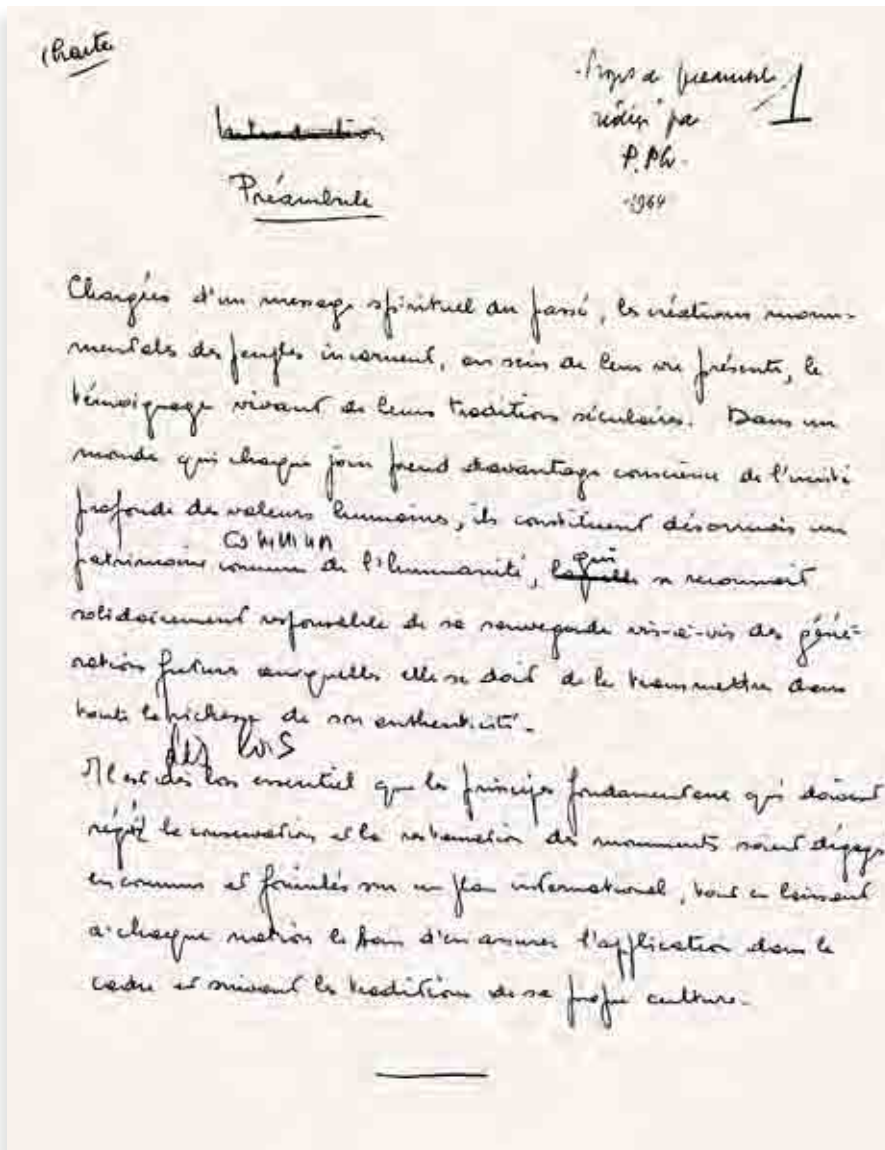 Charte
Projet de préambule
rédigé par
P. Ph.
1964
1
Introduction
Préambule
Chargées d'un message spirituel du passé, les créations monu-
mentales des peuples incarnent, au sein de leur vie présente, le
témoignage vivant de leurs traditions séculaires. Dans un
monde qui chaque jour prend davantage conscience de l'unité
profonde des valeurs humaines, ils constituent désormais un
commun
patrimoine commun de l'humanité, laquelle qui se reconnait
solidairement responsable de sa sauvegarde vis-à-vis des géné-
rations futures auxquelles elle se doit de le transmettre dans
toute la richesse de son authenticité.
dès lors
Il est dès lors essentiel que les principes fondamentaux qui doivent
régir la conservation et la restauration des monuments soient dégagés
en commun et formulés sur un plan international, tout en laissant
à chaque nation le soin d'en assurer l'application dans le
cadre et suivant les traditions de sa propre culture.